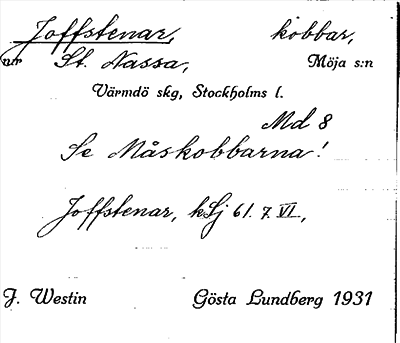 Joffstenar, kobbar,
n/r St. Nassa, Möja s:n
Värmdö skg, Stockholms l.
Md 8
Se Måskobbarna!
Joffstenar, kSj 61. 7. VI.,
J. Westin Gösta Lundberg 1931